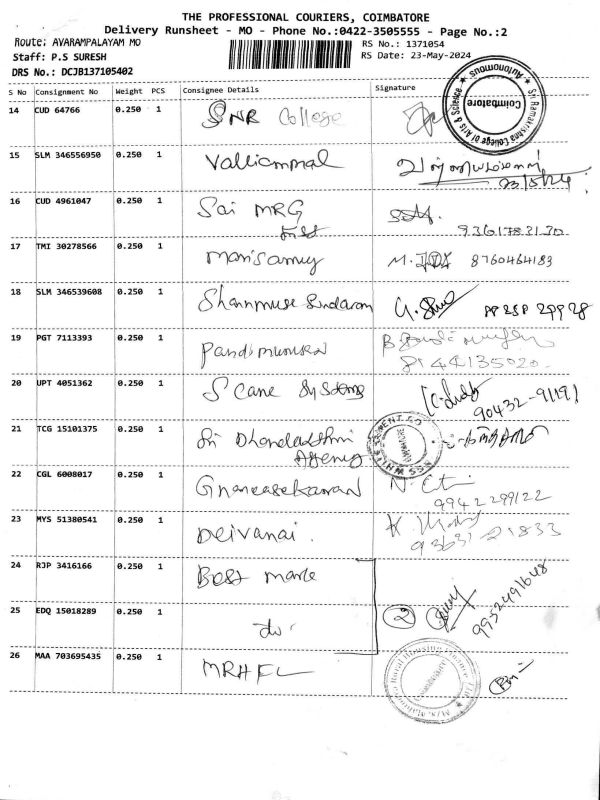 THE PROFESSIONAL COURIERS, COIMBATORE
Delivery Runsheet - MO - Phone No.:0422-3505555 - Page No.:2
Route: AVARAMPALAYAM MO
RS No.: 1371054
Staff: P.S SURESH
RS Date: 23-May-2024
DRS No.: DCJB137105402
S No Consignment No Weight PCS Consignee Details Signature
14 CUD 64766 0.250 1 SNR College
Sri Ramakrishna College of Arts & Science
Autonomous
Coimbatore
15 SLM 346556950 0.250 1 Valliammal
23/5/24
16 CUD 4961047 0.250 1 Sai MRG
17 TMI 30278566 0.250 1 Manisamy M. 8760464183
18 SLM 346539608 0.250 1 Shanmuga Sundaram
19 PGT 7113393 0.250 1
8144135020
20 UPT 4051362 0.250 1 S Cane Systems
90432-91191
21 TCG 15101375 0.250 1 Sri Dhanalakshmi
Agency
22 CGL 6008017 0.250 1 Gnanasekaran N.
9942299122
23 MYS 51380541 0.250 1 Deivanai. K
93631-21833
24 RJP 3416166 0.250 1 Best
9952491648
25 EDQ 15018289 0.250 1 do. 2
26 MAA 703695435 0.250 1 MRHFL